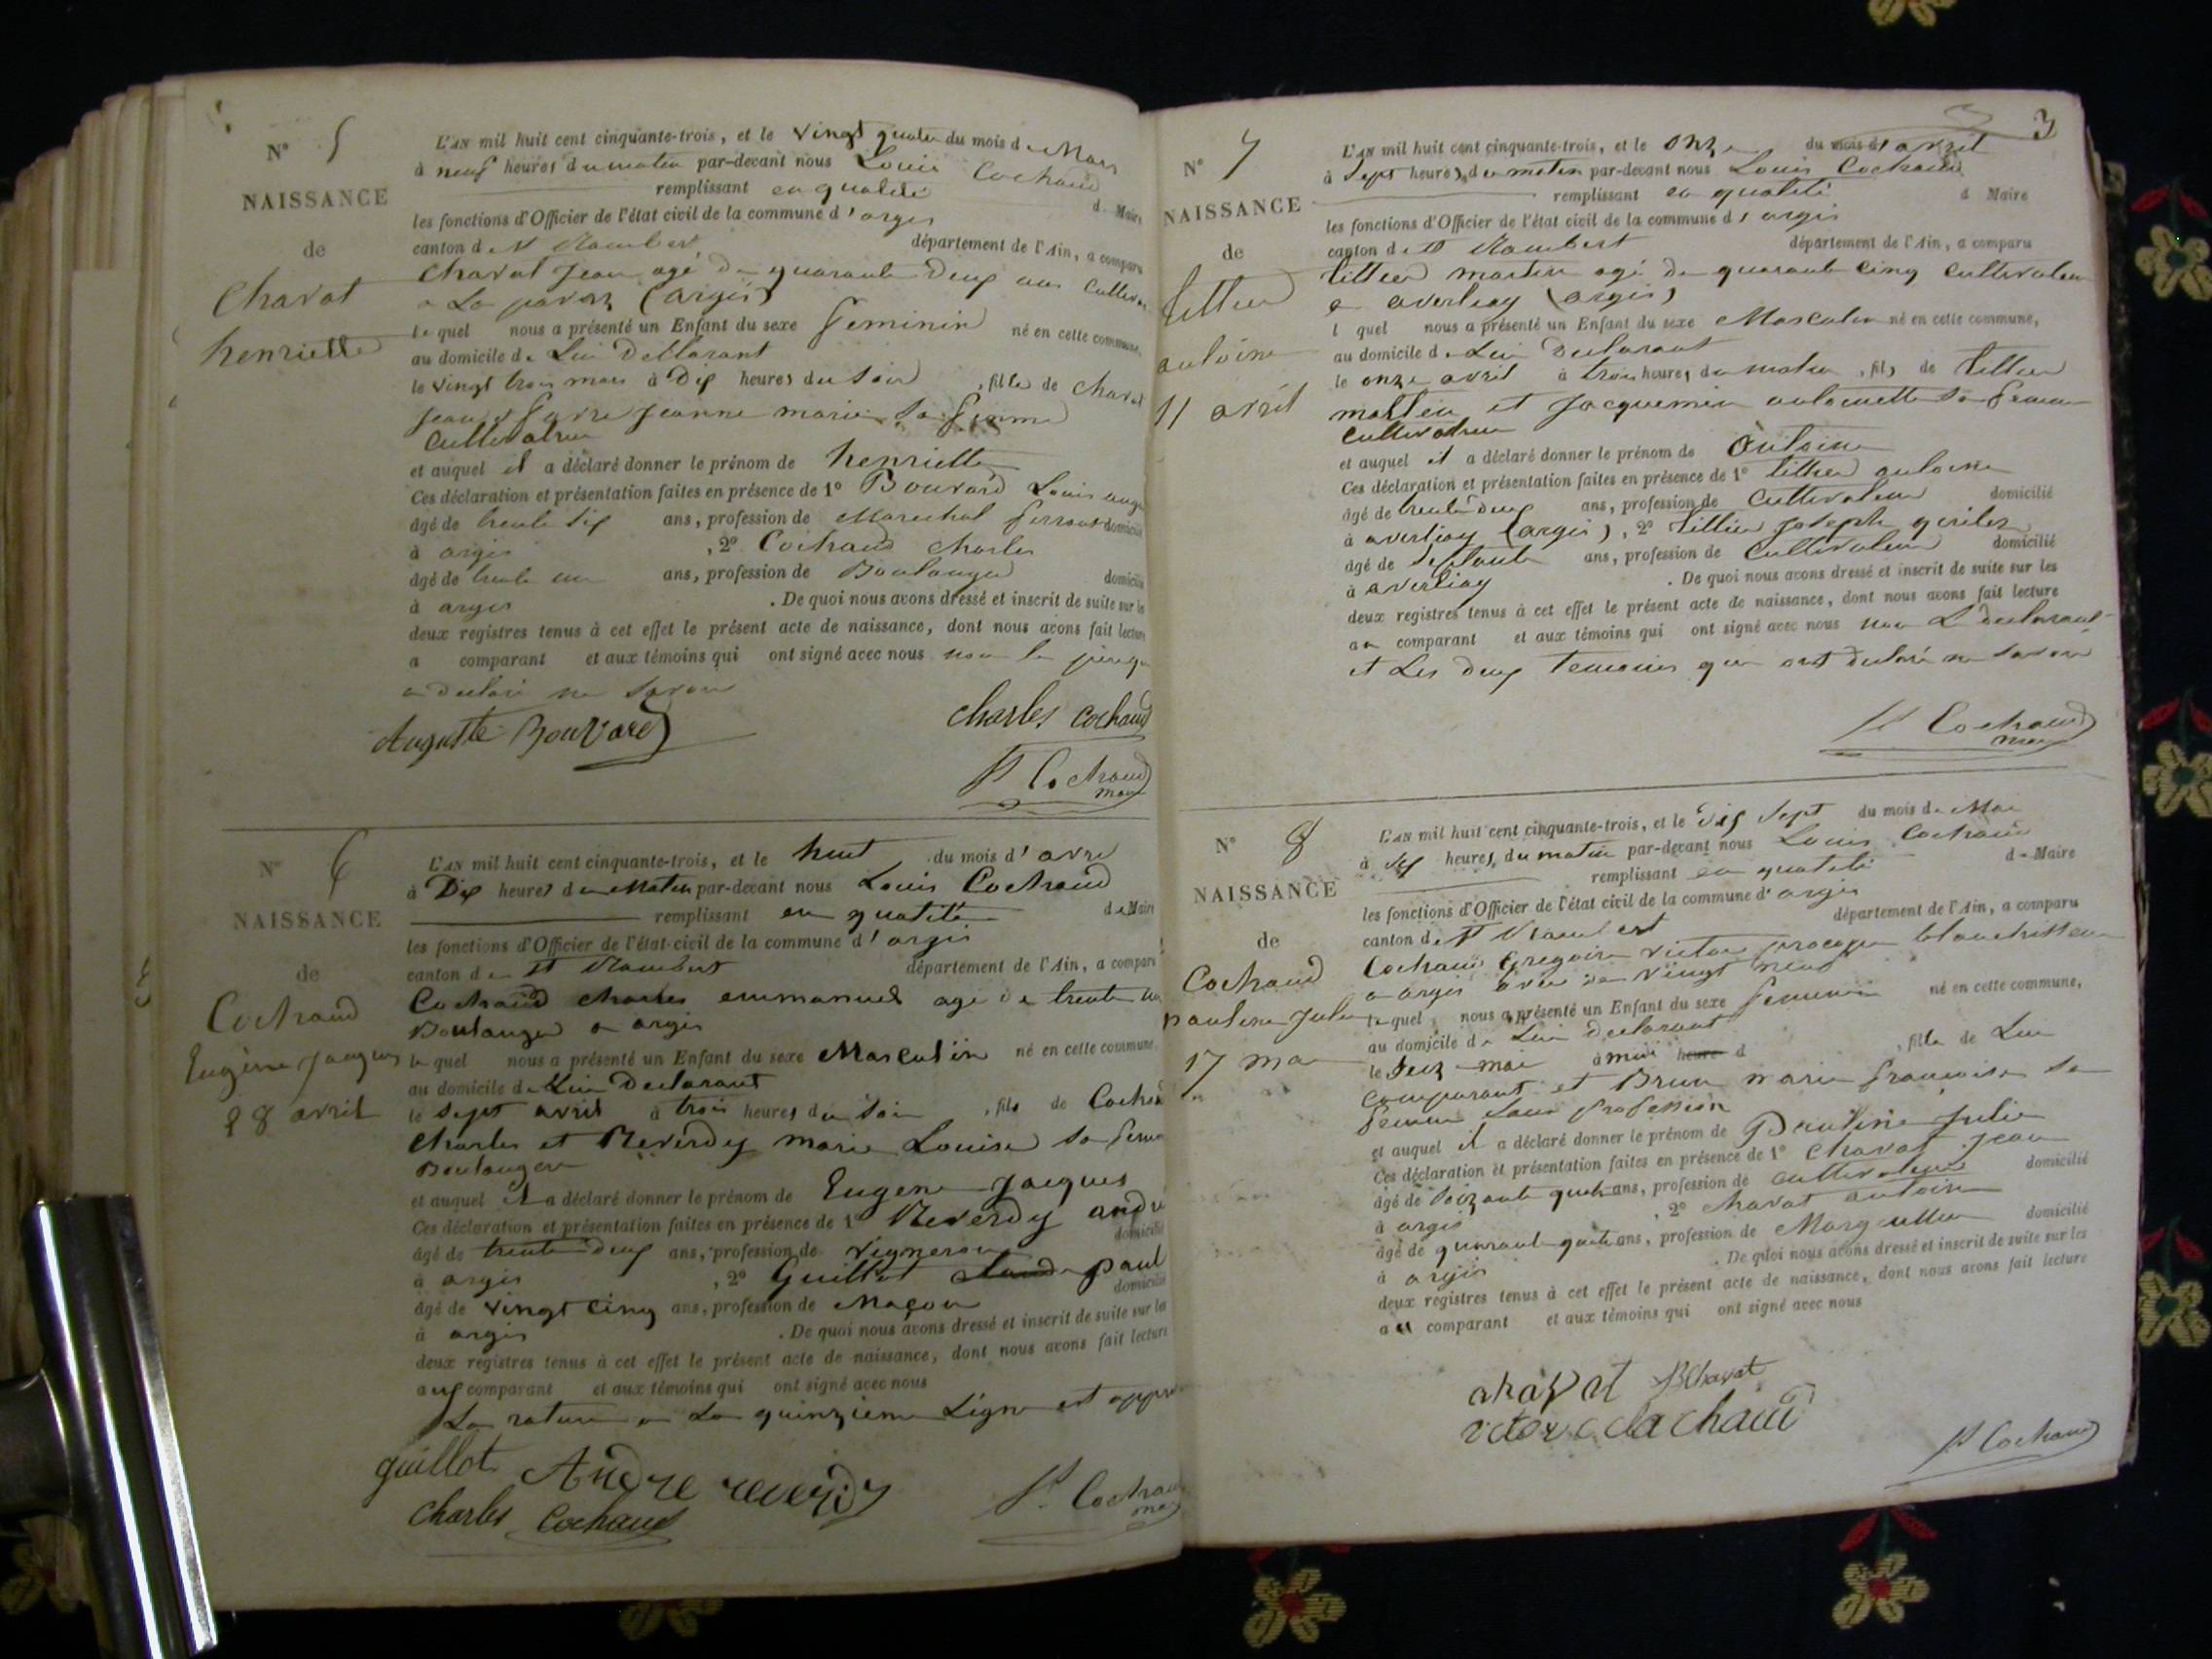 N° 5
NAISSANCE
de
Chavat
henriette
L'AN mil huit cent cinquante-trois, et le vingt quatre du mois de Mars
à neuf heures du matin par-devant nous Louis Cochaud
remplissant en qualité de Maire
les fonctions d'Officier de l'état civil de la commune d'argis
canton de St Rambert département de l'Ain, a comparu
Chavat Jean agé de quarante deux ans
(argis)
le quel nous a présenté un Enfant du sexe feminin né en cette commune,
au domicile de Lui Declarant
le vingt trois mars à Dix heures du soir, fille de Chavat
Jean et Jeanne marie sa femme
Cultivatrice
et auquel il a déclaré donner le prénom de henriette
Ces déclaration et présentation faites en présence de 1° Bouvard Louis
âgé de trente six ans, profession de Marechal ferrant domicilié
à argis, 2° Cochaud Charles
âgé de trente un ans, profession de Boulanger domicilié
à argis. De quoi nous avons dressé et inscrit de suite sur les
deux registres tenus à cet effet le présent acte de naissance, dont nous avons fait lecture
a comparant et aux témoins qui ont signé avec nous non le père qui
a declaré ne savoir
Auguste Bouvard
Charles Cochaud
Ls Cochaud
maire
N° 6
NAISSANCE
de
Cochaud
Eugène Jacques
8 avril
L'AN mil huit cent cinquante-trois, et le huit du mois d'avril
à Dix heures du Matin par-devant nous Louis Cochaud
remplissant en qualité de Maire
les fonctions d'Officier de l'état civil de la commune d'argis
canton de St Rambert département de l'Ain, a comparu
Cochaud charles emmanuel agé de trente un
Boulanger a argis
le quel nous a présenté un Enfant du sexe Masculin né en cette commune,
au domicile de Lui Declarant
le sept avril à trois heures du soir, fils de Cochaud
Charles et Reverdy marie Louise sa femme
Boulangere
et auquel il a déclaré donner le prénom de Eugene Jacques
Ces déclaration et présentation faites en présence de 1° Reverdy andré
âgé de trente deux ans, profession de vigneron domicilié
à argis, 2° Guillot paul
âgé de vingt cinq ans, profession de Maçon domicilié
à argis. De quoi nous avons dressé et inscrit de suite sur les
deux registres tenus à cet effet le présent acte de naissance, dont nous avons fait lecture
aux comparant et aux témoins qui ont signé avec nous
La rature a La quinzieme Ligne est
guillot Andre reverdy
Charles Cochaud
Ls Cochaud
maire
3
N° 7
NAISSANCE
de
tittier
antoine
11 avril
L'AN mil huit cent cinquante-trois, et le onze du mois d'avril
à sept heures du matin par-devant nous Louis Cochaud
remplissant en qualité de Maire
les fonctions d'Officier de l'état civil de la commune d'argis
canton de St Rambert département de l'Ain, a comparu
tittier martin agé de quarante cinq cultivateur
a averliay (argis)
l quel nous a présenté un Enfant du sexe Masculin né en cette commune,
au domicile de Lui Declarant
le onze avril à trois heures du matin, fils de tittier
martin et Jacquemin antoinette sa femme
Cultivatrice
et auquel il a déclaré donner le prénom de Antoine
Ces déclaration et présentation faites en présence de 1° tittier antoine
âgé de trente deux ans, profession de Cultivateur domicilié
à averliay (argis), 2° tittier Joseph
âgé de septante ans, profession de Cultivateur domicilié
à averliay. De quoi nous avons dressé et inscrit de suite sur les
deux registres tenus à cet effet le présent acte de naissance, dont nous avons fait lecture
au comparant et aux témoins qui ont signé avec nous non Le declarant
et Les deux temoins qui ont declaré ne savoir
Ls Cochaud
maire
N° 8
NAISSANCE
de
Cochaud
pauline Julie
17 mai
L'AN mil huit cent cinquante-trois, et le dix sept du mois de Mai
à six heures du matin par-devant nous Louis Cochaud
remplissant en qualité de Maire
les fonctions d'Officier de l'état civil de la commune d'argis
canton de St Rambert département de l'Ain, a comparu
Cochaud Gregoire victor
a argis agé de vingt neuf
le quel nous a présenté un Enfant du sexe feminin né en cette commune,
au domicile de Lui declarant
le seize mai à midi heure d, fille de Lui
comparant et Brun marie françoise sa
femme sans profession
et auquel il a déclaré donner le prénom de Pauline Julie
Ces déclaration et présentation faites en présence de 1° Chavat Jean
âgé de soixante quatre ans, profession de cultivateur domicilié
à argis, 2° Chavat antoine
âgé de quarante quatre ans, profession de Marguillier domicilié
à argis. De quoi nous avons dressé et inscrit de suite sur les
deux registres tenus à cet effet le présent acte de naissance, dont nous avons fait lecture
au comparant et aux témoins qui ont signé avec nous
Chavat
Ls Cochaud